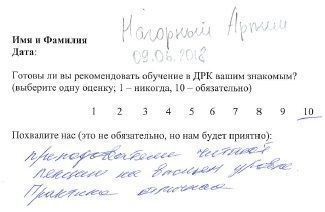 Имя и Фамилия Нагорный Артём
Дата: 09.06.2018
Готовы ли вы рекомендовать обучение в ДРК вашим знакомым?
(выберите одну оценку; 1 – никогда, 10 – обязательно)
1 2 3 4 5 6 7 8 9 10
Похвалите нас (это не обязательно, но нам будет приятно):
преподаватели читают
лекции на высшем уровне.
Практика отличная